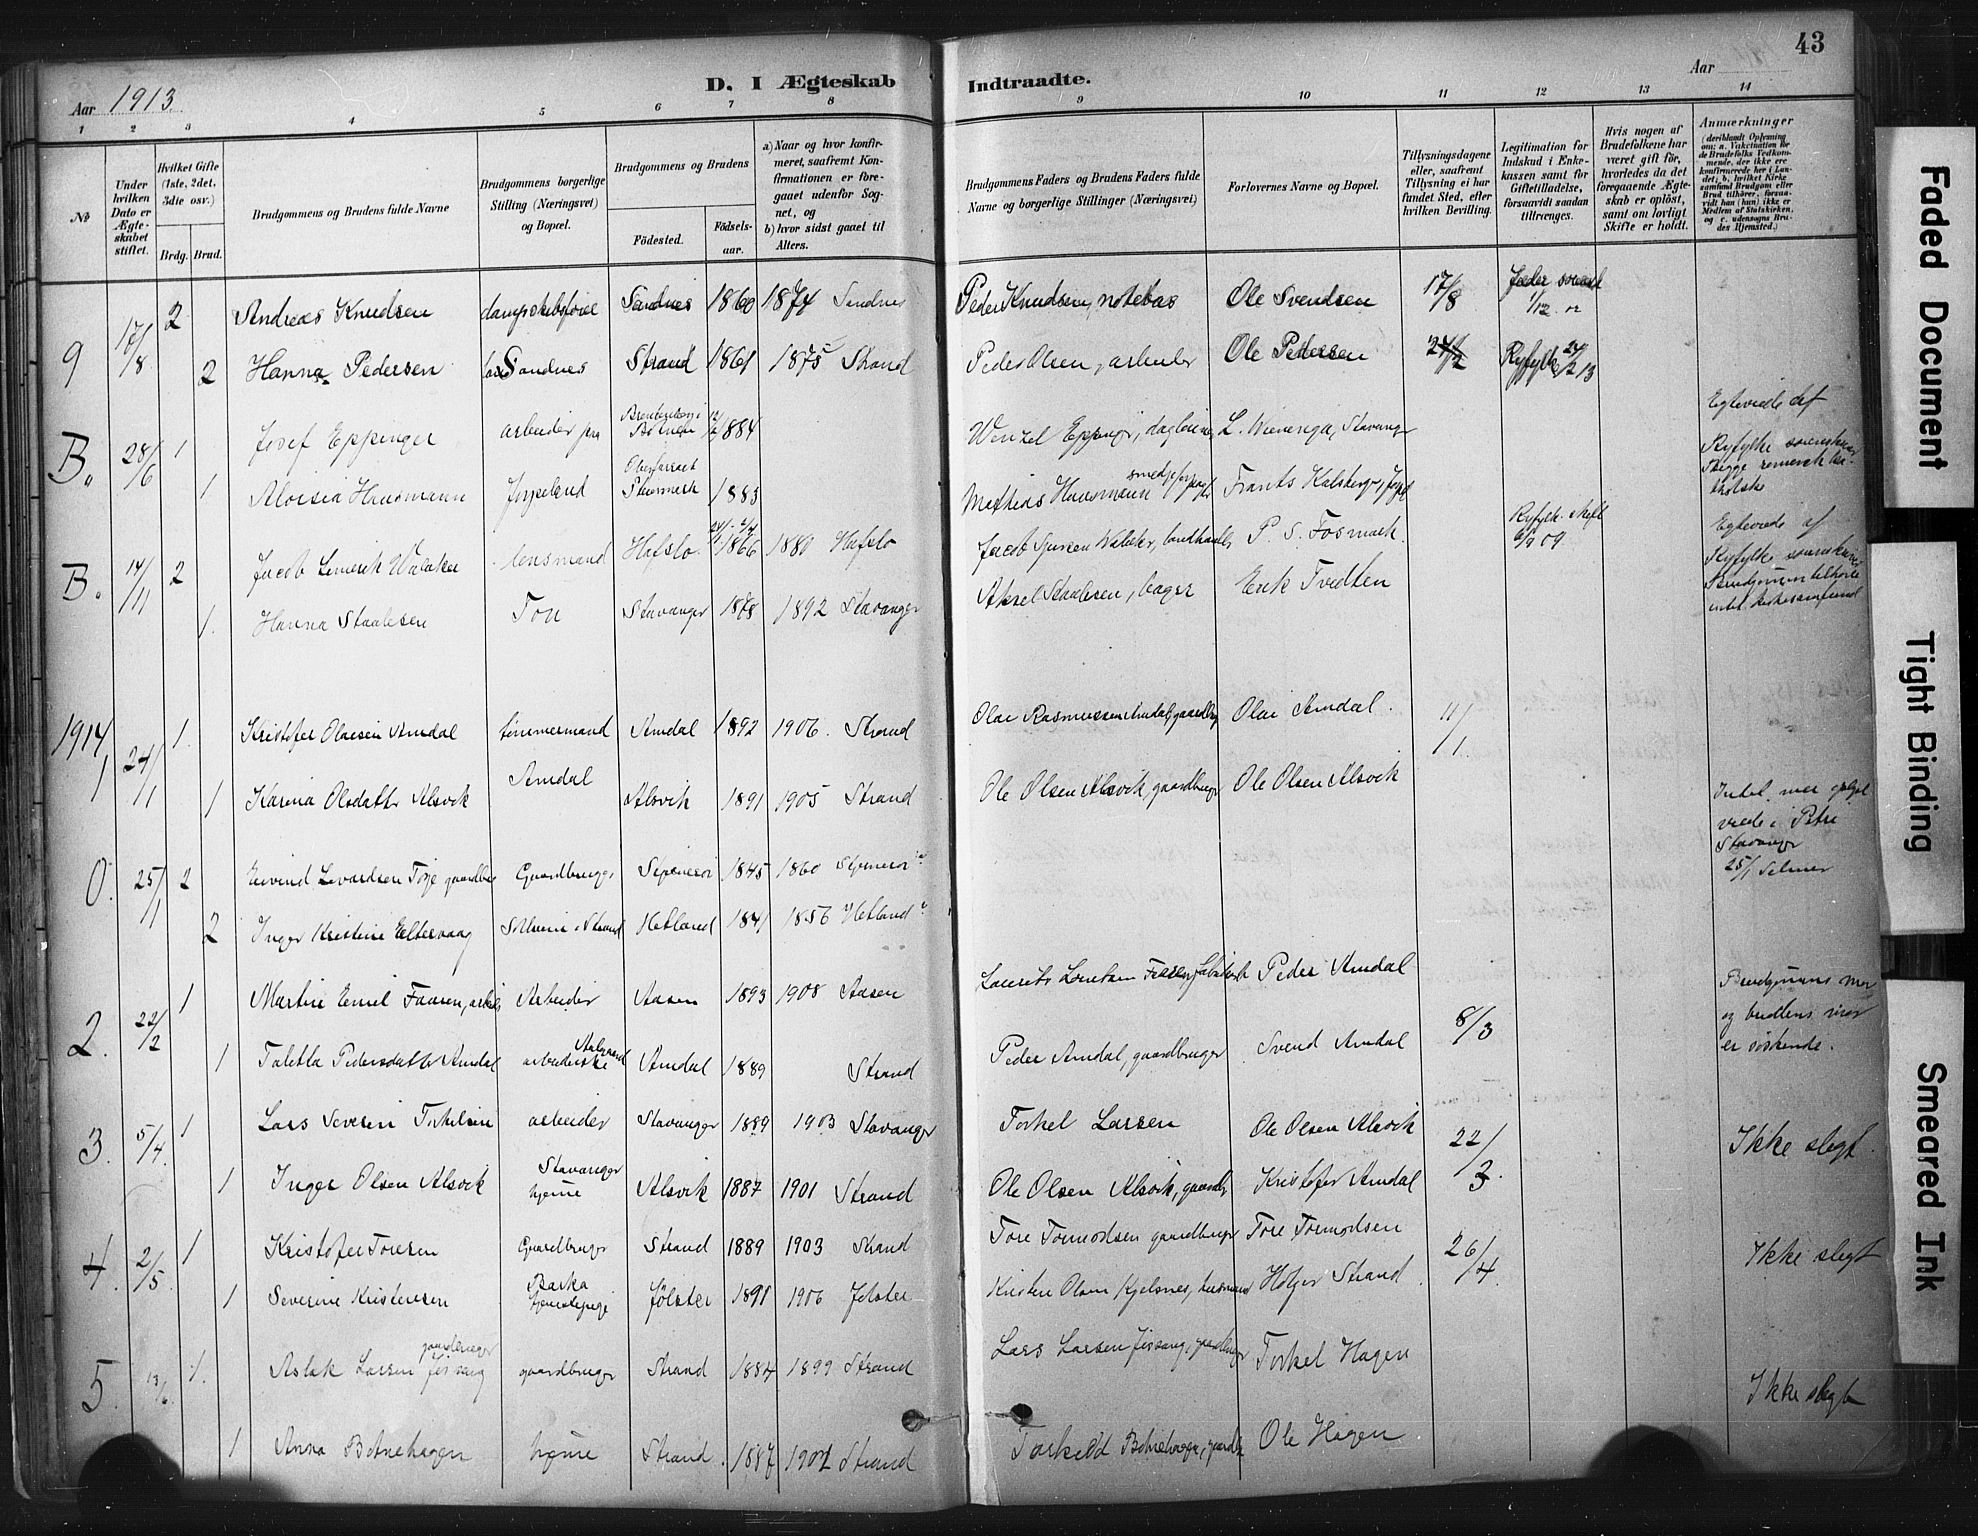 43
D. I Ægteskab Indtraadte.
Aar 1913.
Aar
1 2 3 4 5 6 7 8 9 10 11 12 13 14
No
Under hvilken Dato er Ægteskabet stiftet.
Hvilket Gifte (1ste, 2det, 3die osv.)
Brdg. Brud.
Brudgommens og Brudens fulde Navne
Brudgommens borgerlige Stilling (Næringsvei) og Bopæl.
Brudgommens og Brudens
Fødested.
Fødselsaar.
a) Naar og hvor konfirmeret, saafremt Konfirmationen er foregaaet udenfor Sognet, og
b) hvor sidst gaaet til Alters.
Brudgommens Faders og Brudens Faders fulde Navne og borgerlige Stillinger (Næringsvei)
Forlovernes Navne og Bopæl.
Tillysningsdagene eller, saafremt Tillysning ei har fundet Sted, efter hvilken Bevilling.
Legitimation for Indskud i Enkekassen samt for Giftetilladelse, forsaavidt saadan tiltrænges.
Hvis nogen af Brudefolkene har været gift før, hvorledes da det foregaaende Ægteskab er opløst, samt om lovligt Skifte er holdt.
Anmærkninger
(deriblandt Oplysning om: a. Vakcination for de Brudefolks Vedkommende, der ikke ere konfirmerede her i Landet; b, hvilket Kirkesamfund Brudgom eller Brud tilhører, forsaavidt han (hun) ikke er Medlem af Statskirken, og c. udensogns Brudes Hjemsted.)
9 17/8 2 Andreas Knudsen Sandnes 1860 1874 Sandnes Peder Knudsen, notebas Ole Svendsen 17/8 1/12
2 Hanna Pedersen Sandnes Strand 1861 1875 Strand Peder Olsen, arbeider Ole Pedersen Ryfylke 24/2 13
B. 28/6 1 Josef Eppinger arbeider paa 12/2 1884 Wenzel Eppinger, L. Stavanger Egteviede af
1 Aloisia Hausmann Jørpeland Steiermark 1883 Mathias Hausmann Frants Kalsberg, Ryfylke sorenskriver
Begge romersk katholske
B. 14/11 2 Jacob Walaker lensmand Hafslo 1866 1880 Hafslo Jacob Walaker, landhandler P. S. Fosmark. Ryfylke skift 09 Egteviede af
1. Hanna Staalesen Tou Stavanger 1878 1892 Stavanger Aksel Staalesen, bager Erik Tvedten Ryfylke sorenskriver
1914
1 24/1 1. Kristofer Olaisen Amdal tømmermand Amdal 1892 1906. Strand Olai Rasmussen Amdal, gaardbr. Olai Amdal. 11/1.
1 Karina Olsdatter Alsvik Amdal Alsvik 1891 1905 Strand Ole Olsen Alsvik, gaardbruger Ole Olsen Alsvik
0. 25/1 2 Eivind Gaardbruger 1845 1860
2 Inger Kristine Eltervaag Hetland 1841 1856 Hetland
viede i Petri
Stavanger
25/1 Selmer
2. 22/2 1 Martin Emil Faasen, arbeid. Arbeider Aasen 1893 1908 Aasen Peder Amdal 8/3 Brudgommens mor
1 Taletta Pedersdatter Amdal arbeiderske Aalgaard Amdal 1889 Strand Peder Amdal, gaardbruger Svend Amdal og brudens mor
er søskende.
3. 5/4. 1 Lars Severin Torkelsen arbeider Stavanger 1889 1903 Stavanger Torkel Larsen Ole Olsen Alsvik 22/3. Ikke slegt.
1 Inger Olsen Alsvik Stavanger hjeme Alsvik 1887 1901 Strand Ole Olsen Alsvik, gaardbr. Kristofer Amdal
4. 2/5. 1 Kristofer Toresen Gaardbruger Strand 1889 1903 Strand Tore Tormodsen gaardbruger Tore Tormodsen 26/4. Ikke slegt
1 Severine Kristensen Barka tjenestepige Jølster 1891 1906 Jølster Kristen Olsen Kjelsnes, husmand Holger Strand.
5. 13/6. 1. Aslak Larsen Jøssang gaardbruger gaardbruger Strand 1884 1899 Strand Lars Larsen Jøssang, gaardbruger Torkel Hagen Ikke slegt
1 Anna Botnehagen hjeme Strand 1887 1902 Strand Torkeld Botnehagen, gaardbr. Ole Hagen
Faded Document
Tight Binding
Smeared Ink